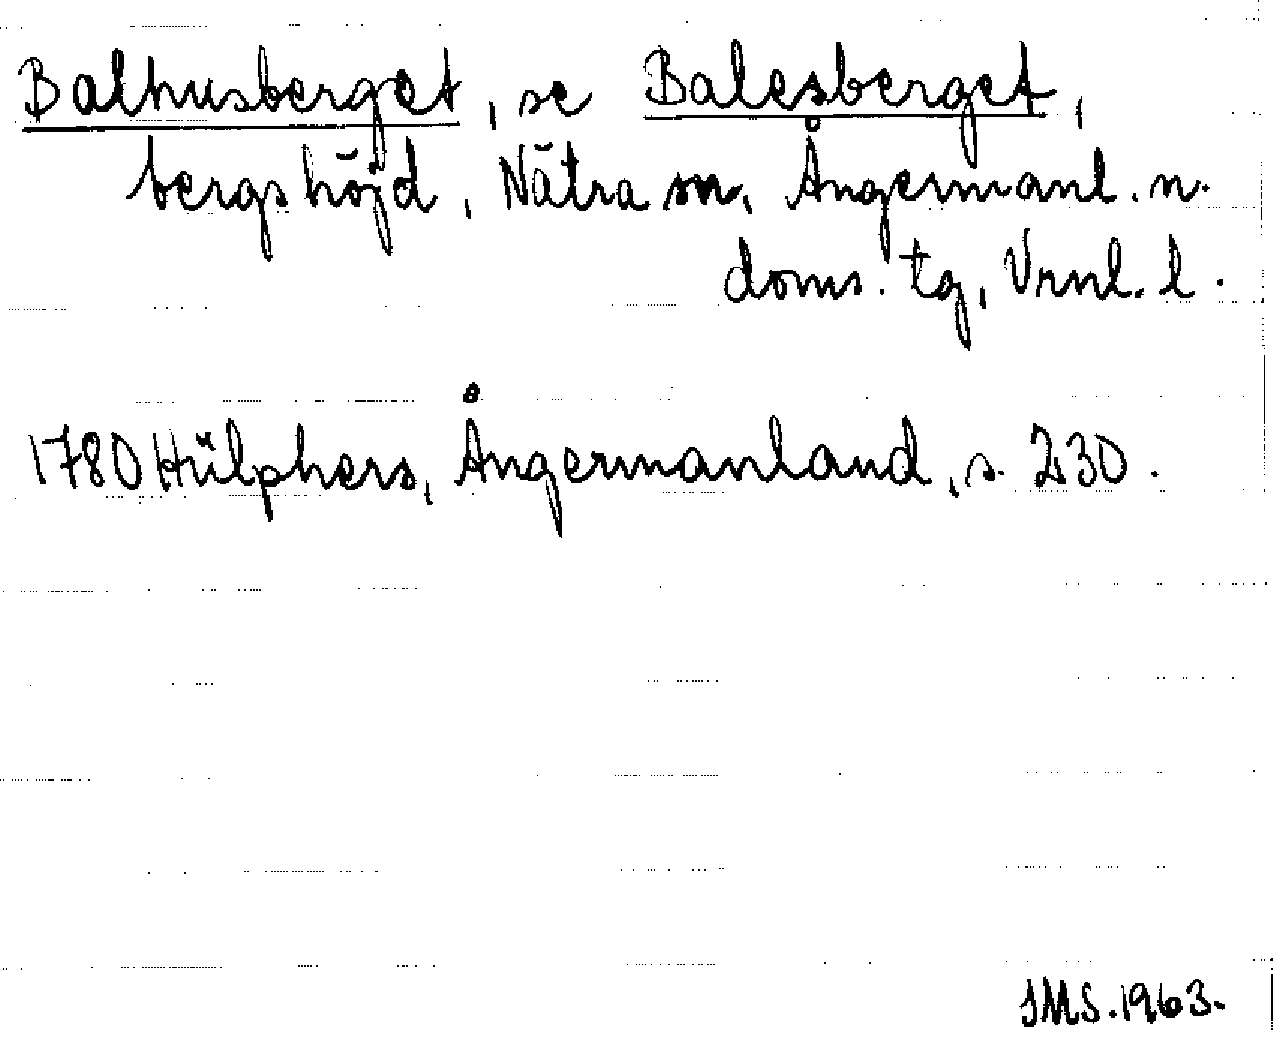 Balhusberget, se Balesberget,
bergshöjd, Nätra sn, Ångermanl. n.
doms. tg, Vrnl. l.
1780 Hülphers, Ångermanland, s. 230.
JMS. 1963.